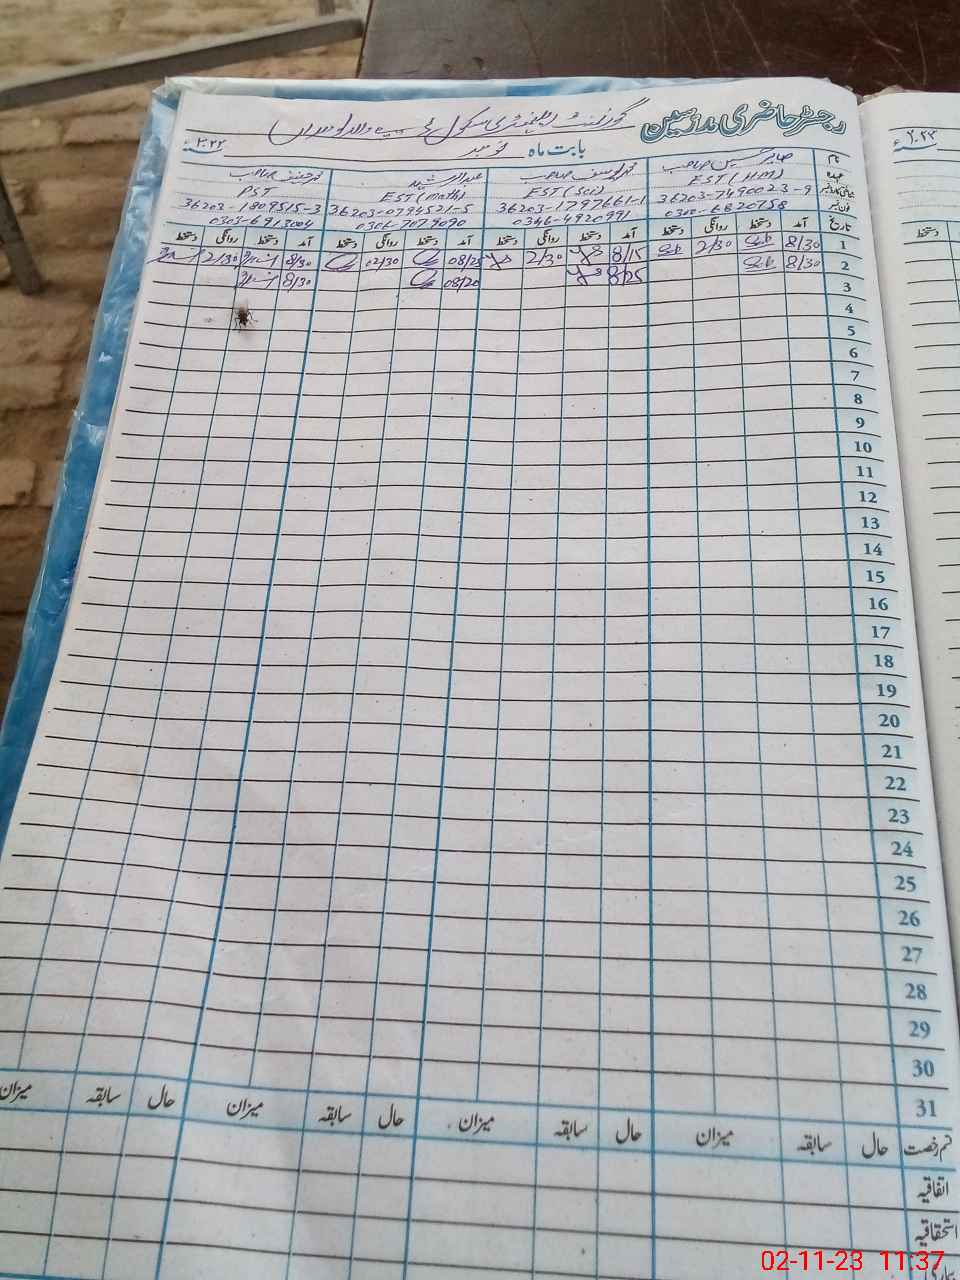 رجسٹر حاضری مدرسین گورنمنٹ ایلیمنٹری سکول
بابت ماہ نومبر ۲۰۲۳ء
نام صابر حسین صاحب محمد یوسف صاحب عبدالرشید محمد حنیف صاحب
عہدہ EST (HM) EST (Sci) EST (Math) PST
شناختی کارڈ نمبر 36203-7490023-9 36203-1797661-1 36203-0794521-5 36203-1809515-3
فون نمبر 0302-6820758 0346-4920991 0306-7079090 0303-6913004
تاریخ آمد دستخط روانگی دستخط آمد دستخط روانگی دستخط آمد دستخط روانگی دستخط آمد دستخط روانگی دستخط
1 8/30 2/30 8/15 2/30 08/25 02/30 8/30 2/30
2 8/30 8/25 08/20 8/30
3
4
5
6
7
8
9
10
11
12
13
14
15
16
17
18
19
20
21
22
23
24
25
26
27
28
29
30
31
قسم رخصت حال سابقہ میزان حال سابقہ میزان حال سابقہ میزان حال سابقہ میزان
اتفاقیہ
استحقاقیہ
۲۰۲۳ء
دستخط
02-11-23 11:37